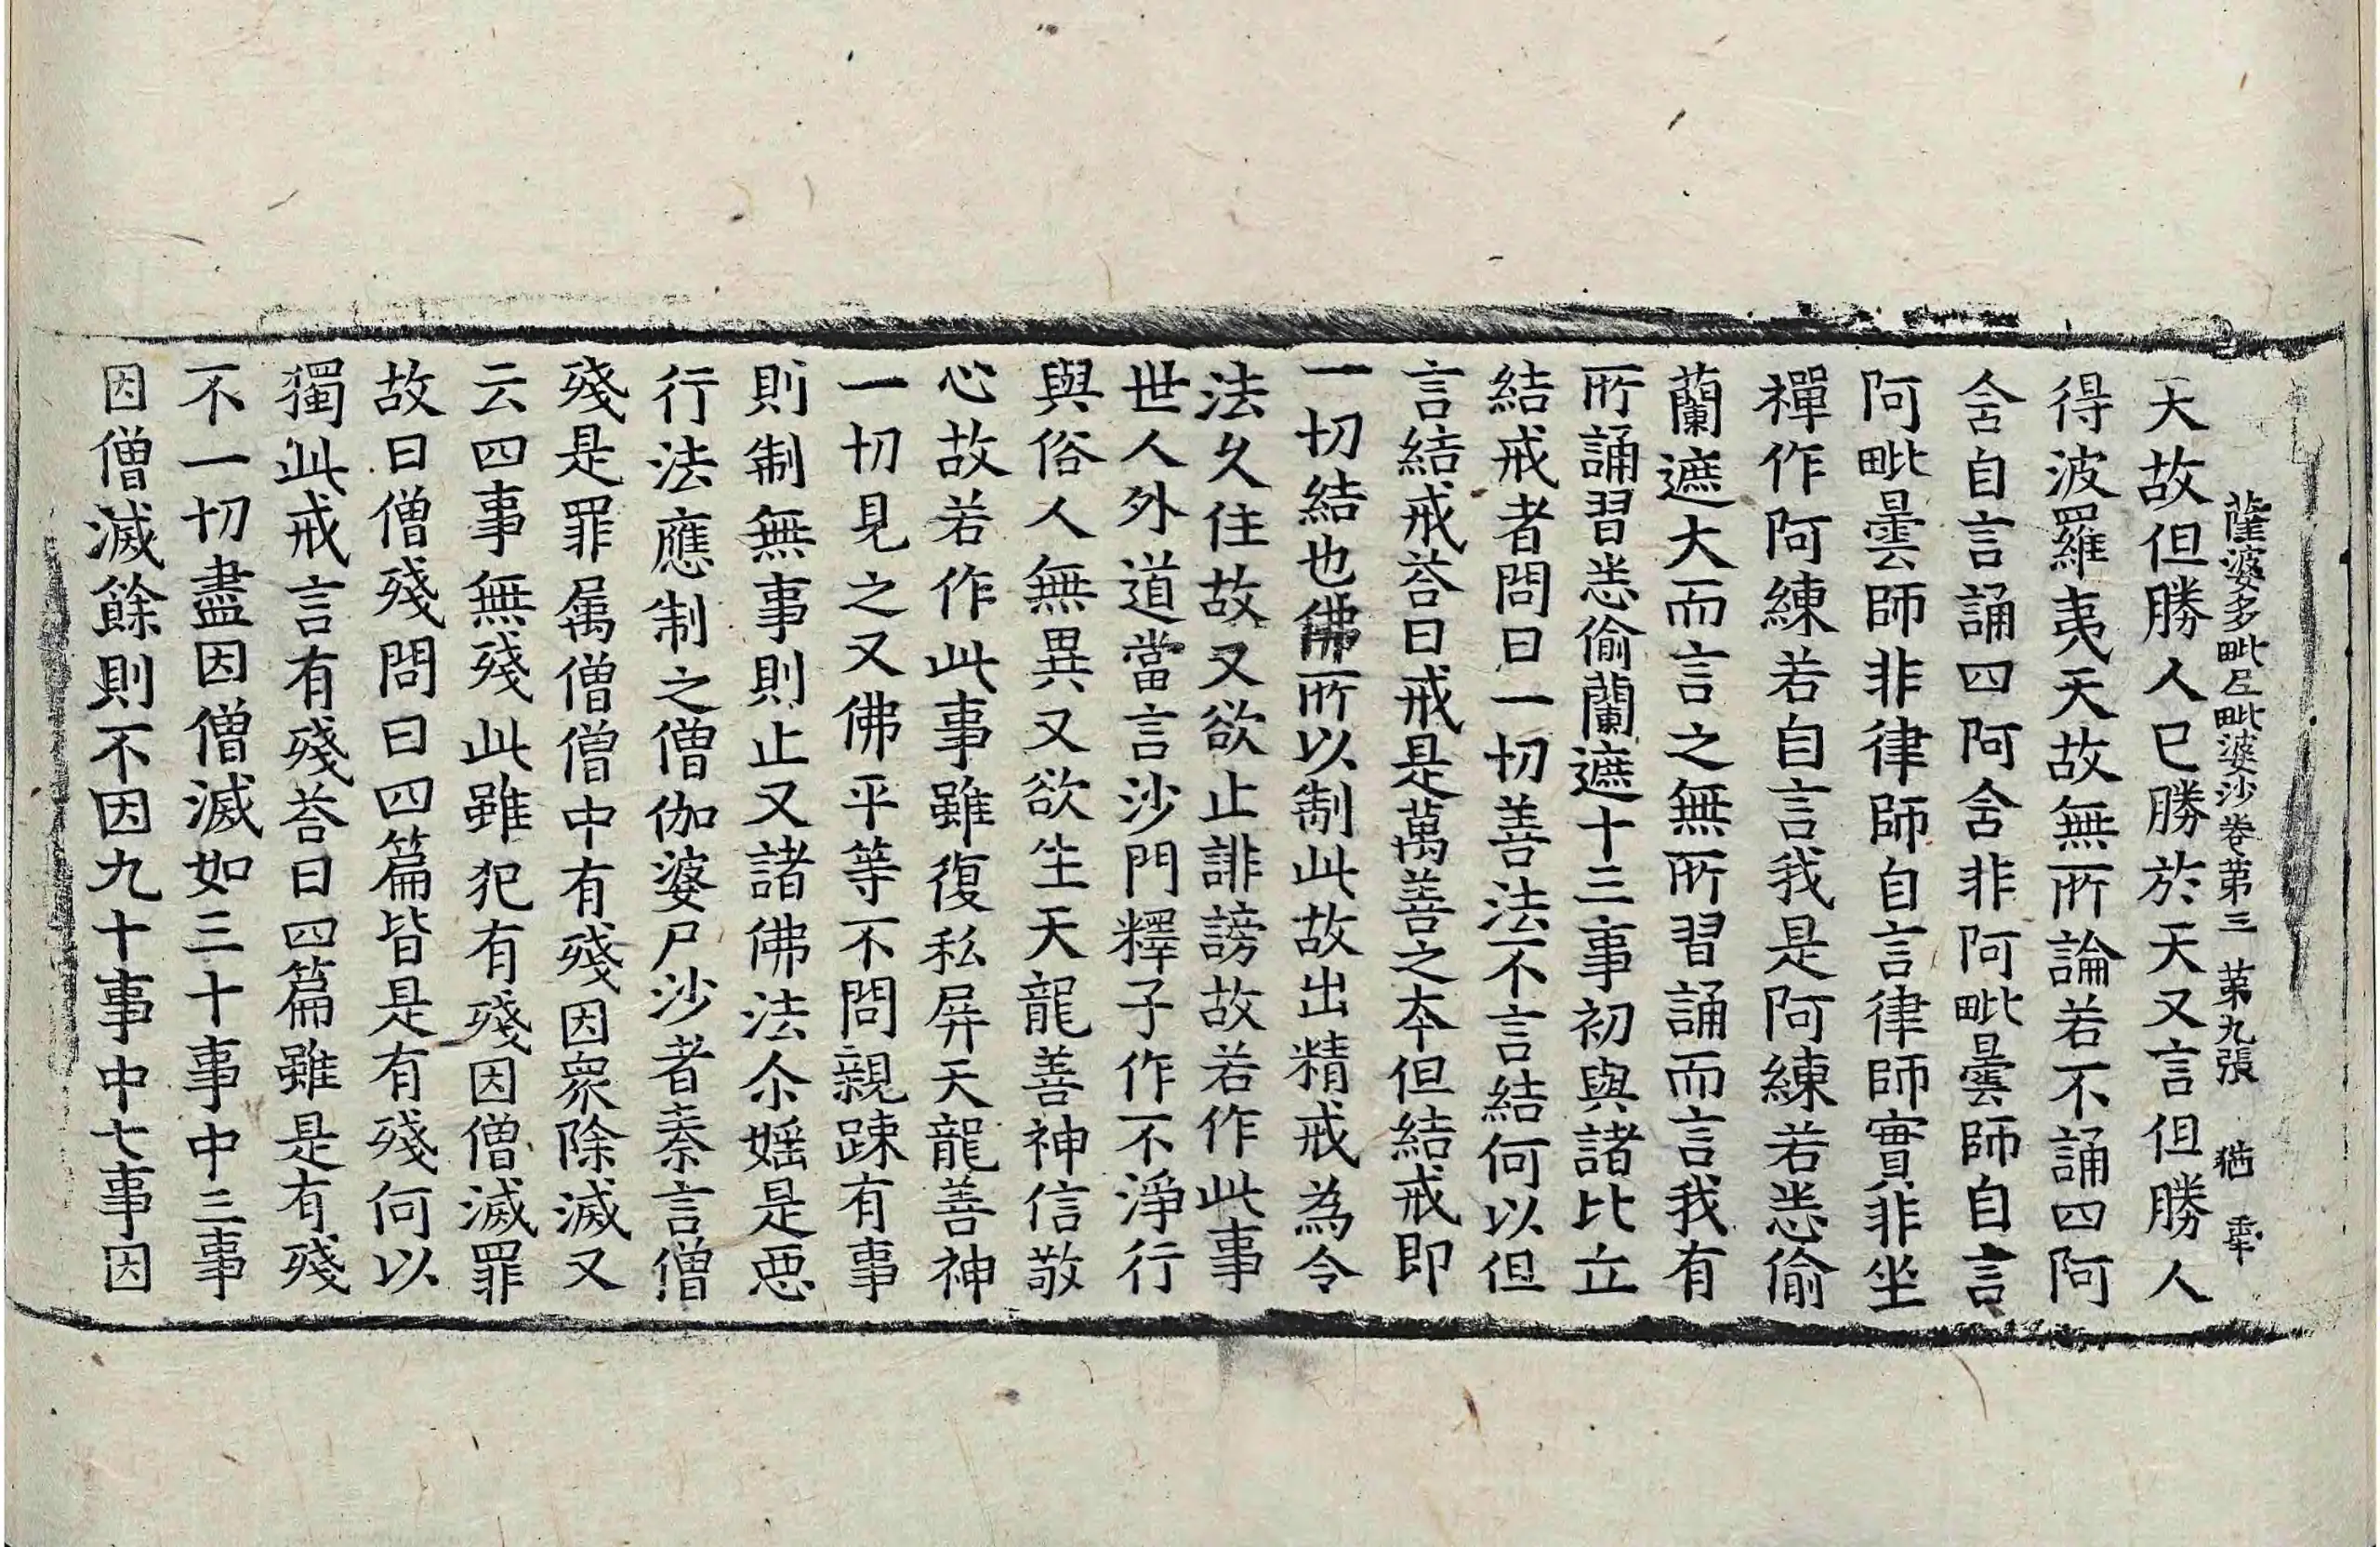 薩婆多毗尼毗婆沙卷第三 第九張 猶
天故但勝人已勝於天又言但勝人
得波羅夷天故無所論若不誦四阿
含自言誦四阿含非阿毗曇師自言
阿毗曇師非律師自言律師實非坐
禪作阿練若自言我是阿練若悉偷
蘭遮大而言之無所習誦而言我有
所誦習悉偷蘭遮十三事初與諸比立
結戒者問曰一切善法不言結何以但
言結戒荅曰戒是萬善之夲但結戒即
一切結也佛所以制此故出精戒為令
法久住故又欲止誹謗故若作此事
世人外道當言沙門釋子作不淨行
與俗人無異又欲生天龍善神信敬
心故若作此事雖復私屏天龍善神
一切見之又佛平等不問親踈有事
則制無事則止又諸佛法尒婬是惡
行法應制之僧伽婆尸沙者秦言僧
殘是罪属僧僧中有殘因衆除滅又
云四事無殘此雖犯有殘因僧滅罪
故曰僧殘問曰四篇皆是有殘何以
獨此戒言有殘荅曰四篇雖是有殘
不一切盡因僧滅如三十事中三事
因僧滅餘則不因九十事中七事因